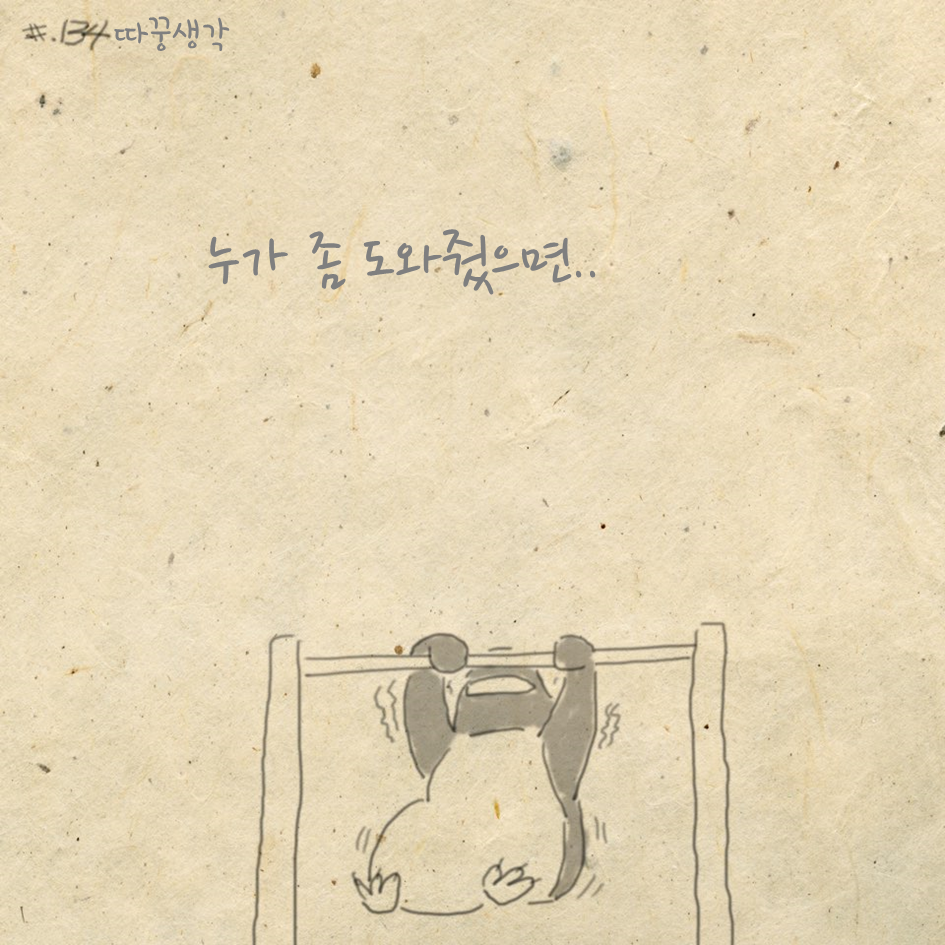 #.134 따꿍생각
누가 좀 도와줬으면..